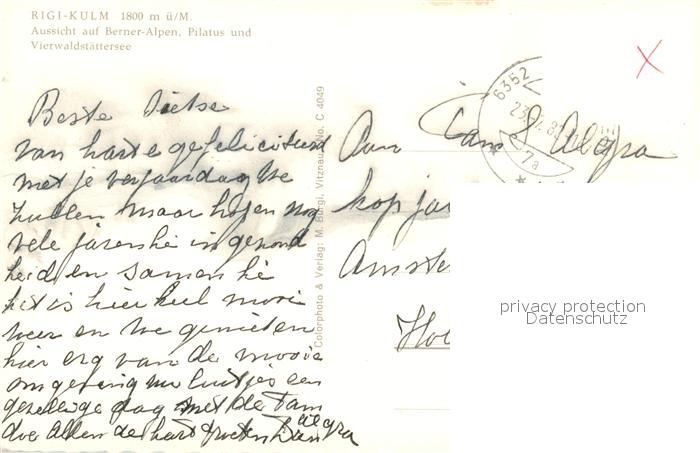 RIGI-KULM 1800 m ü/M.
Aussicht auf Berner-Alpen, Pilatus und
Vierwaldstättersee
Beste Sietse
van harte gefeliciteerd
met je verjaardag We
zullen maar hopen nog
vele jaren hie in gezond
heid en samen hé
het is hier heel mooi
weer en we genieten
hier erg van de mooie
omgeving nu luitjes een
gezellige dag met de Fam
doe Allen de hart groeten
Algra
Colorphoto & Verlag: M. Bürgi, Vitznau, No. C 4049
6352
23.
7a
Aan Fam S Algra
kop jar
Amste
Hol
privacy protection
Datenschutz